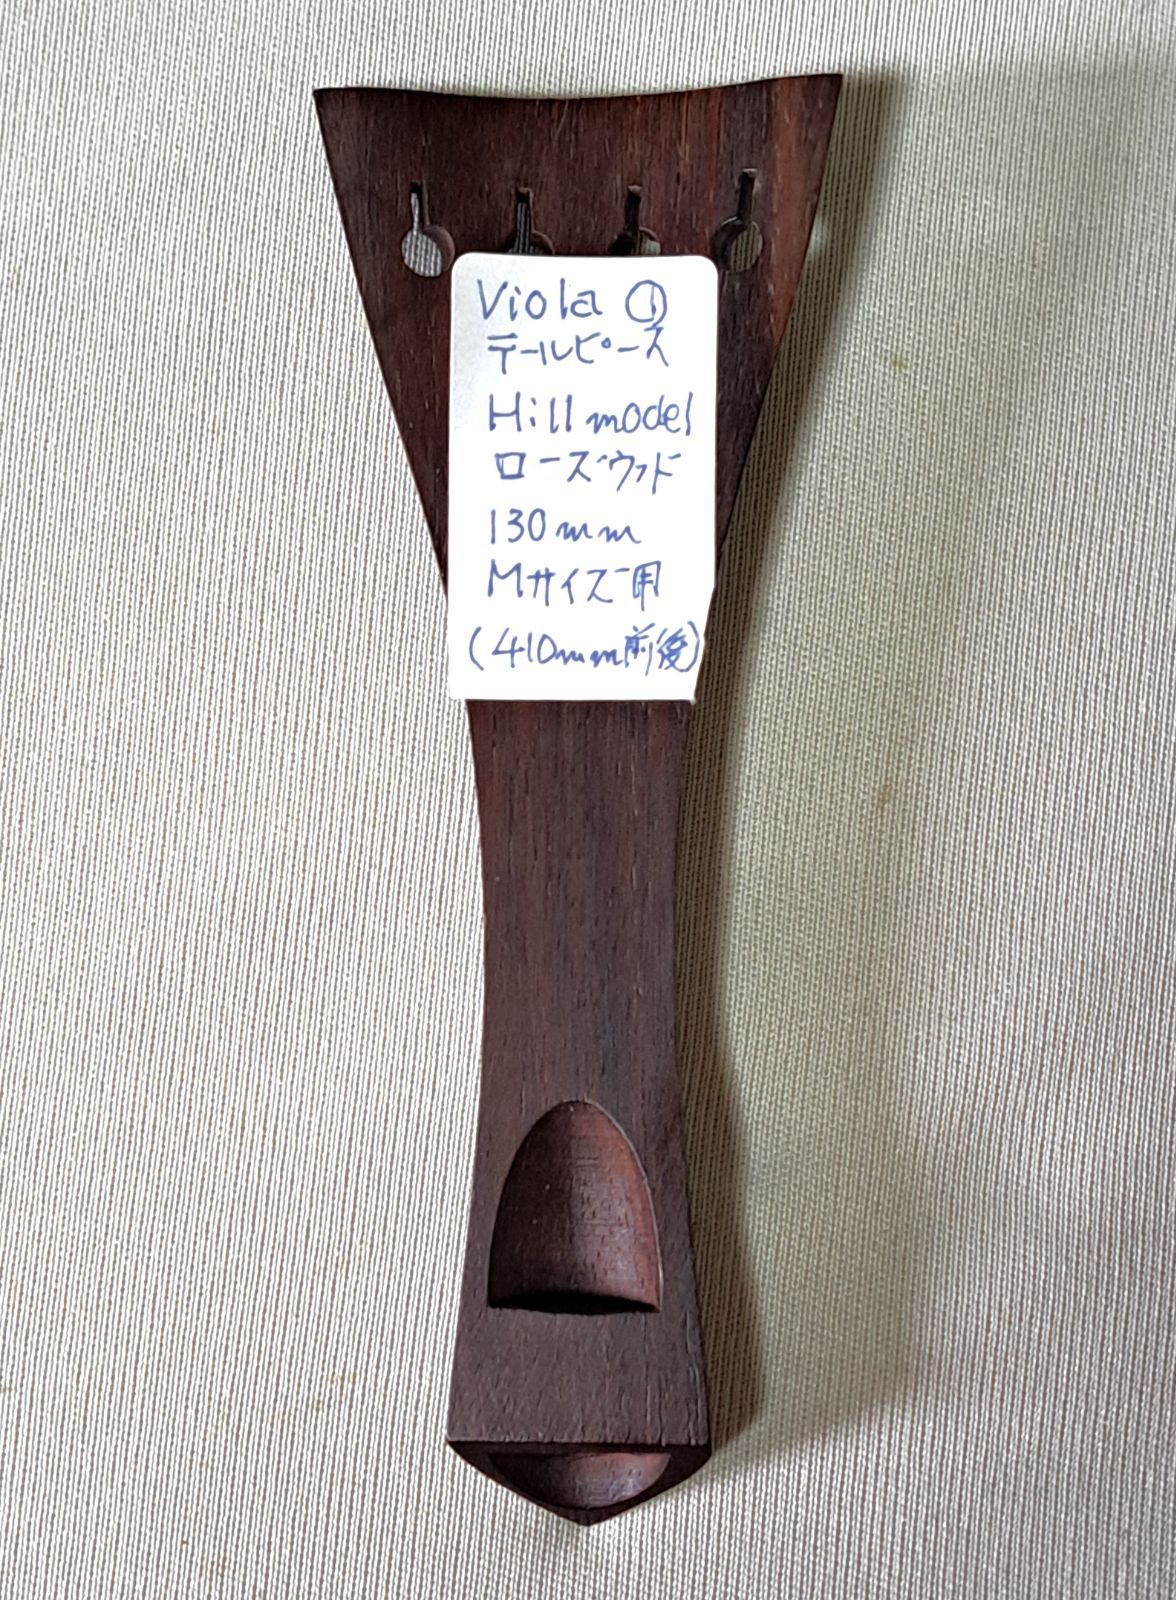 Viola ①
テールピース
Hill model
ローズウッド
130mm
Mサイズ用
(410mm前後)